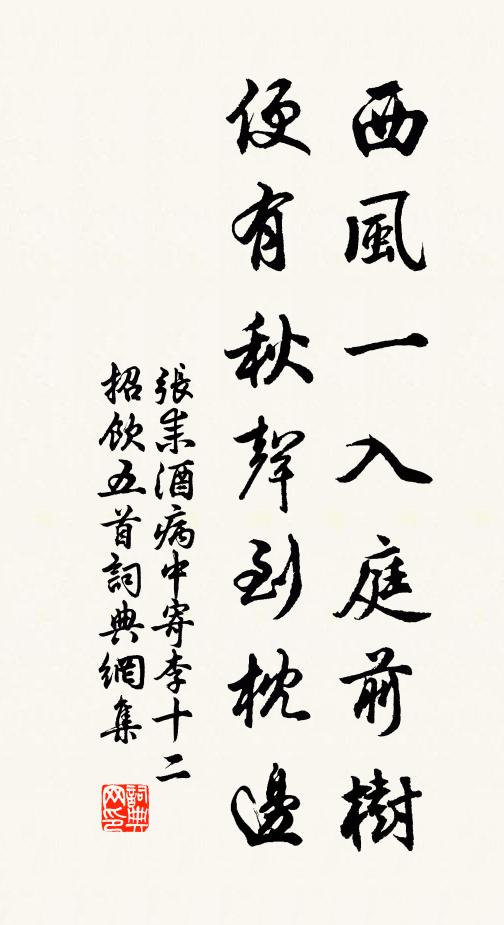 西風一入庭前樹
便有秋聲到枕邊
張耒酒病中寄李十二
招飲五首詞典網集
詞典
網印